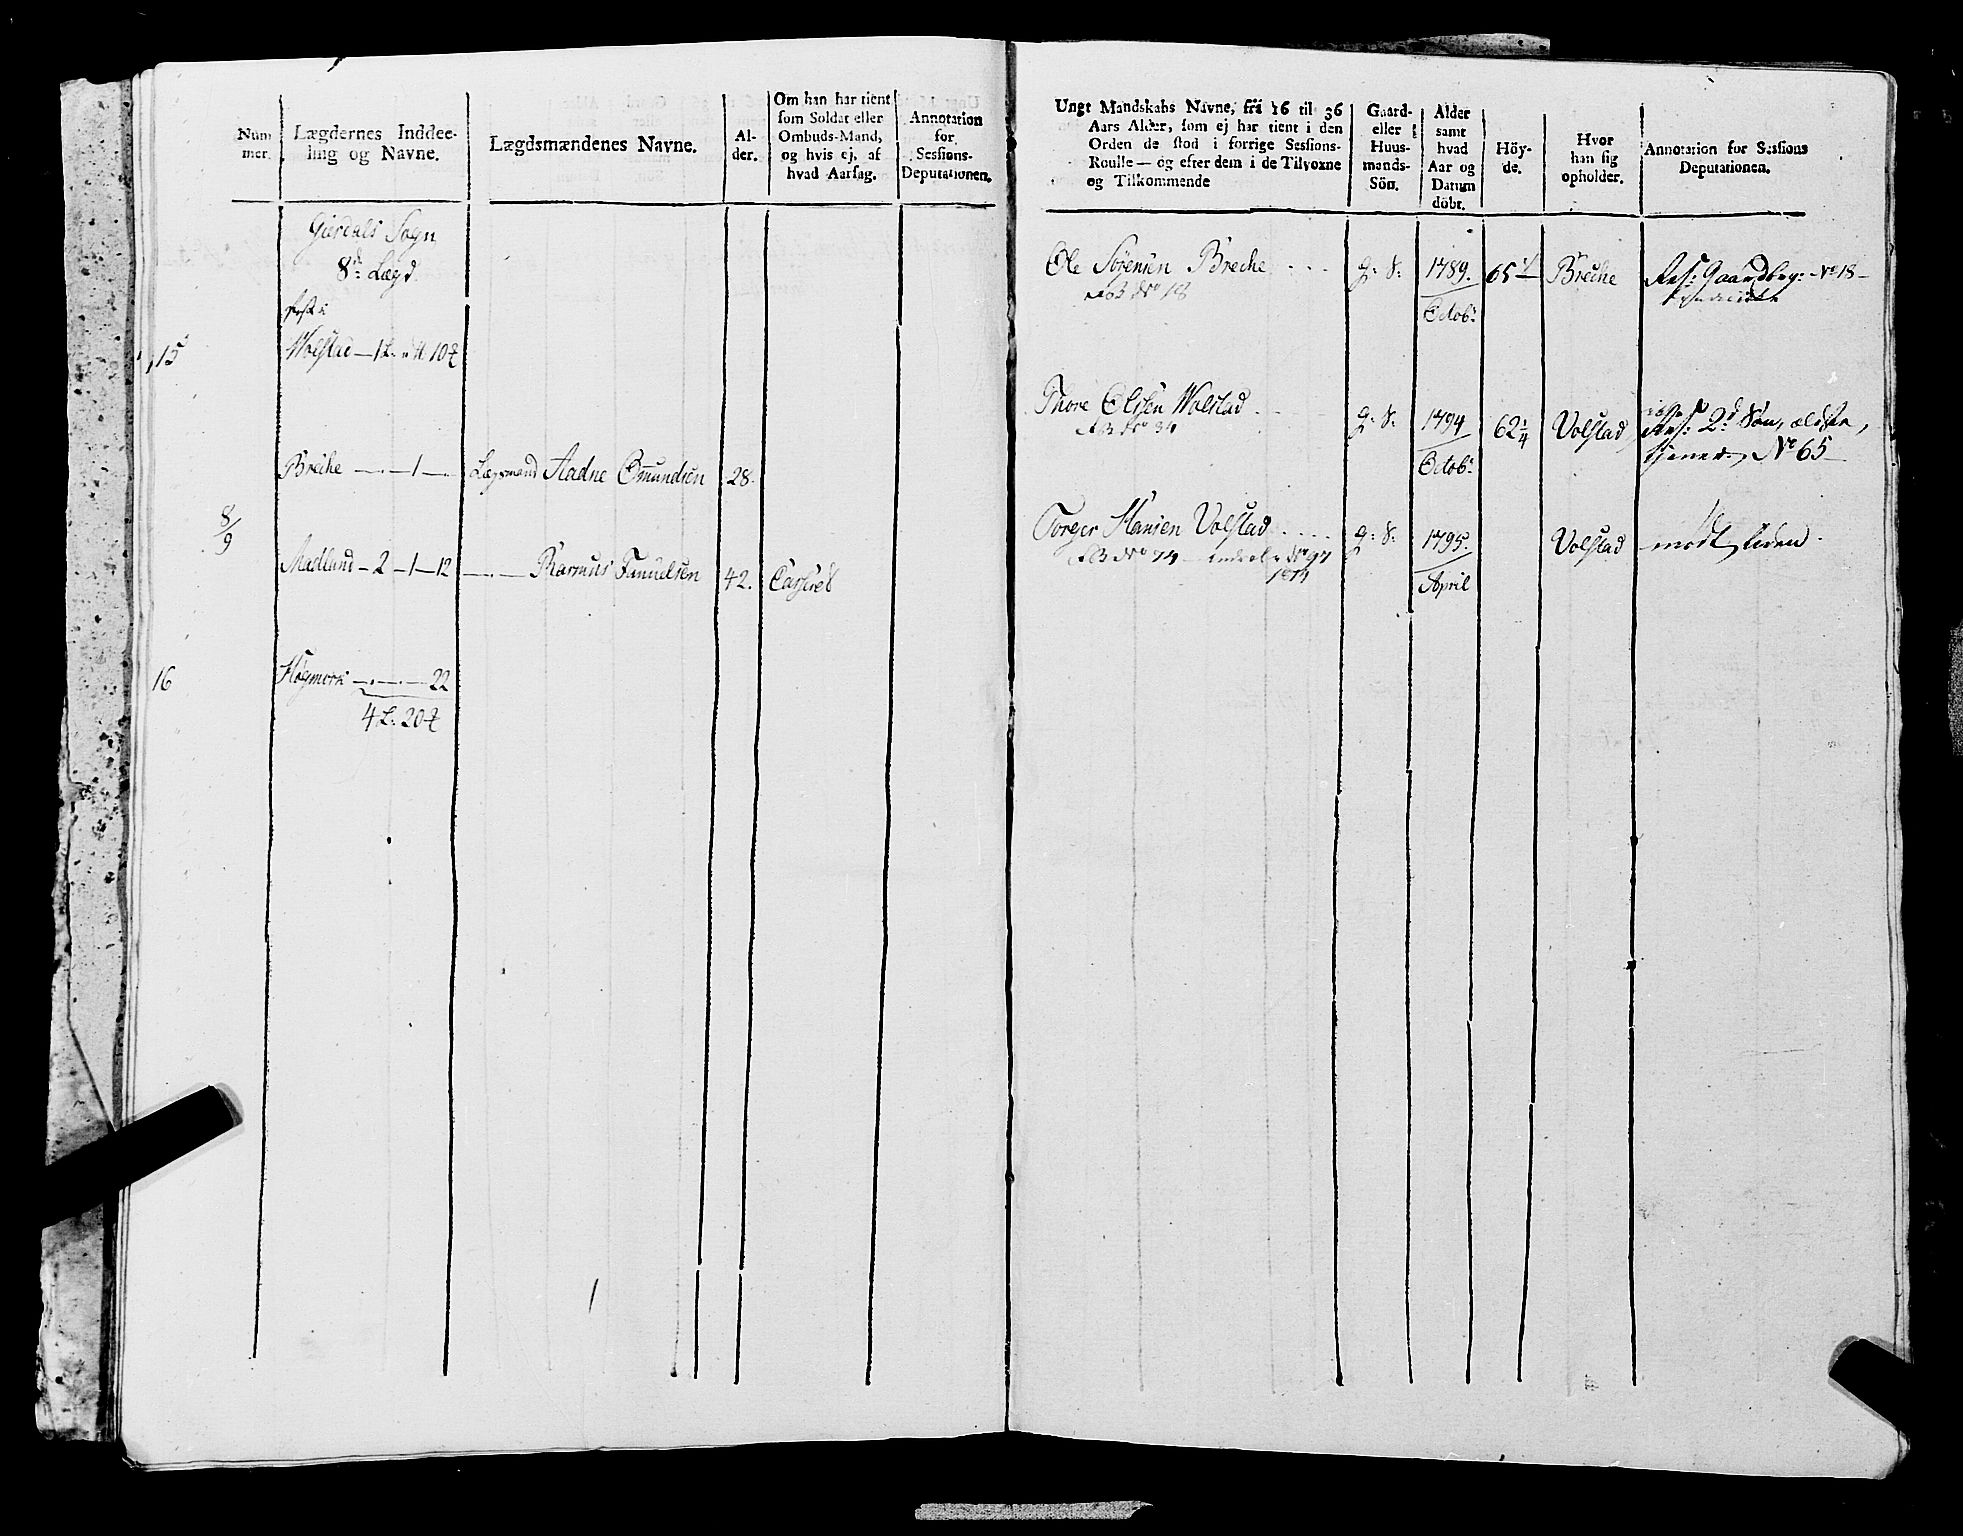 Num
mer.
Lægdernes Inddee-
ling og Navne.
Lægdsmændenes Navne.
Al-
der.
Om han har tient
som Soldat eller
Ombuds-Mand,
og hvis ej, af
hvad Aarsag.
Annotation
for
Sessions-
Deputationen.
Giesdals Sogn
8d: Lægd
15
Wolstad — 1 L. " " 10
Breche — 1 —
Lægsmand Aadne Omundsen 28.
8/9
Madland — 2 — 1 — 12
Rasmus Samuelsen 42. Casseret
16
Høgmork — 22
4 L: 20
Ungt Mandskabs Navne, fra 16 til 36
Aars Alder, som ej har tient i den
Orden de stod i forrige Sessions-
Roulle — og efter dem i de Tilvoxne
og Tilkommende
Gaard-
eller
Huus-
mands-
Sön.
Alder
samt
hvad
Aar og
Datum
döbt.
Höy-
de.
Hvor
han sig
opholder.
Annotation for Sessions
Deputationen.
Ole Sørensen Breche . . . g: S: 1789. 65 Breche Res: Gaardbrg: No 18
RB No 18
Octobr
Thore Olsen Wolstad . . g: S: 1794 62 1/4 Volstad Res: 2d Søn, ældste,
RB No 34
tjener No 65
Octobr
Torger Hansen Volstad . . . . g: S: 1795. Volstad mødt, liden.
RB No 74 No 97
1814
April